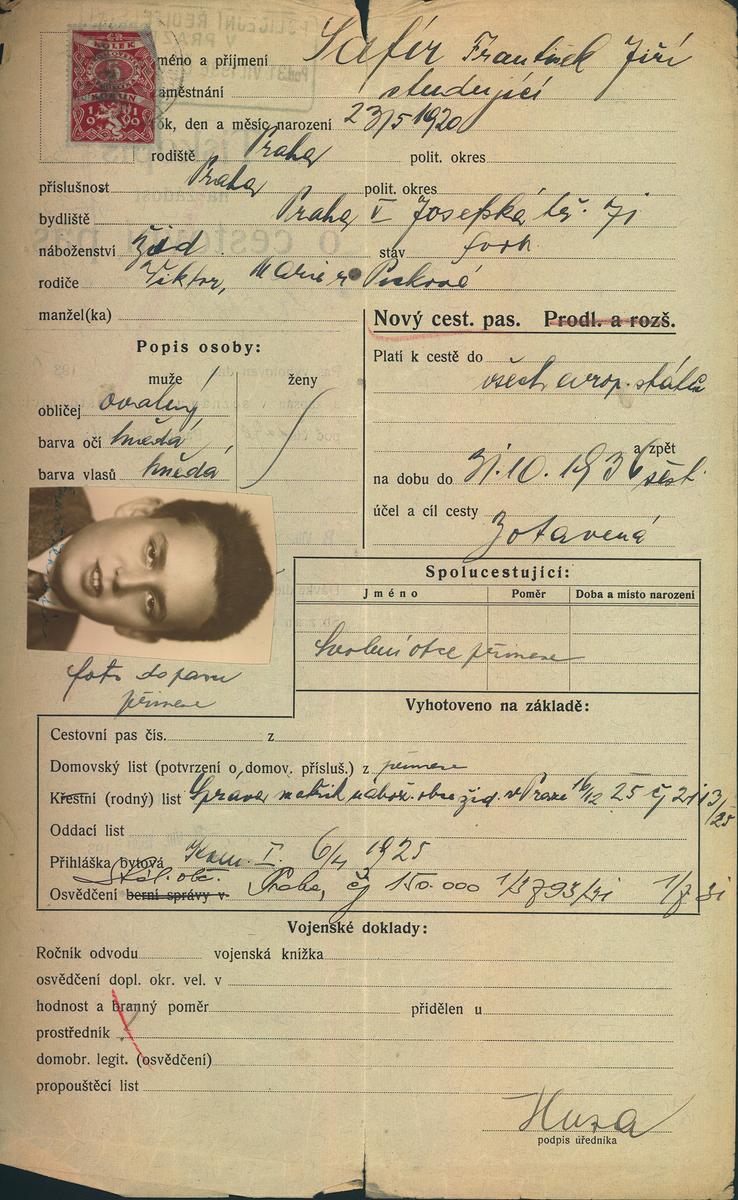 KOLEK
5
KORUN
1919
jméno a příjmení Šafír František Jiří
zaměstnání studující
rok, den a měsíc narození 23/5 1920
rodiště Praha polit. okres
příslušnost Praha polit. okres
bydliště Praha V Josefská
náboženství žid. stav svob.
rodiče Viktor, Marie r. Picková
manžel(ka)
Nový cest. pas. Prodl. a rozš.
Popis osoby:
muže ženy
obličej oválný
barva očí hnědá
barva vlasů hnědá
Platí k cestě do
všech evrop. států
a zpět
na dobu do 31.10. 1936
účel a cíl cesty
Zotavená
Spolucestující:
Jméno Poměr Doba a místo narození
Svolení otce přinese
foto do pasu
přinese
Vyhotoveno na základě:
Cestovní pas čís. z
Domovský list (potvrzení o domov. přísluš.) z přinese
Křestní (rodný) list Správa matrik nábož. obce žid. v Praze 16/12 25
Oddací list
Přihláška bytová Kom. I. 6/4 1925
Stál. obč.
Osvědčení berní správy v Praha, čj 150.000
Vojenské doklady:
Ročník odvodu vojenská knížka
osvědčení dopl. okr. vel. v
hodnost a branný poměr přidělen u
prostředník
domobr. legit. (osvědčení)
propouštěcí list
podpis úředníka